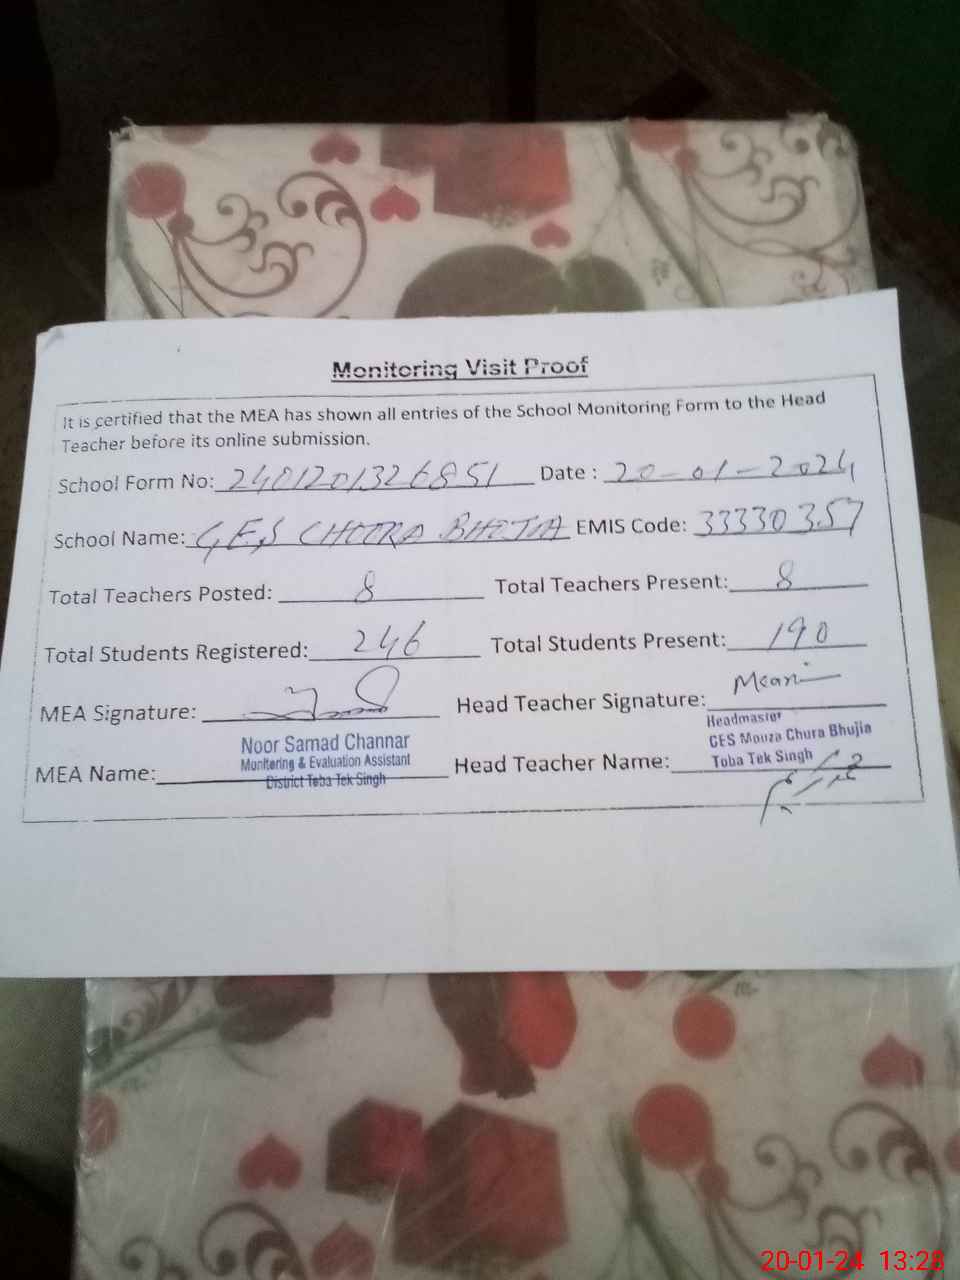 Monitoring Visit Proof
It is certified that the MEA has shown all entries of the School Monitoring Form to the Head
Teacher before its online submission.
School Form No: 2401201326851 Date : 20-01-2024
School Name: GES CHOORA BHOJIA EMIS Code: 33330357
Total Teachers Posted: 8 Total Teachers Present: 8
Total Students Registered: 246 Total Students Present: 190
MEA Signature: Head Teacher Signature:
Headmaster
GES Mouza Chura Bhujia
Toba Tek Singh
MEA Name: Noor Samad Channar Head Teacher Name:
Monitoring & Evaluation Assistant
District Toba Tek Singh
20-01-24 13:28